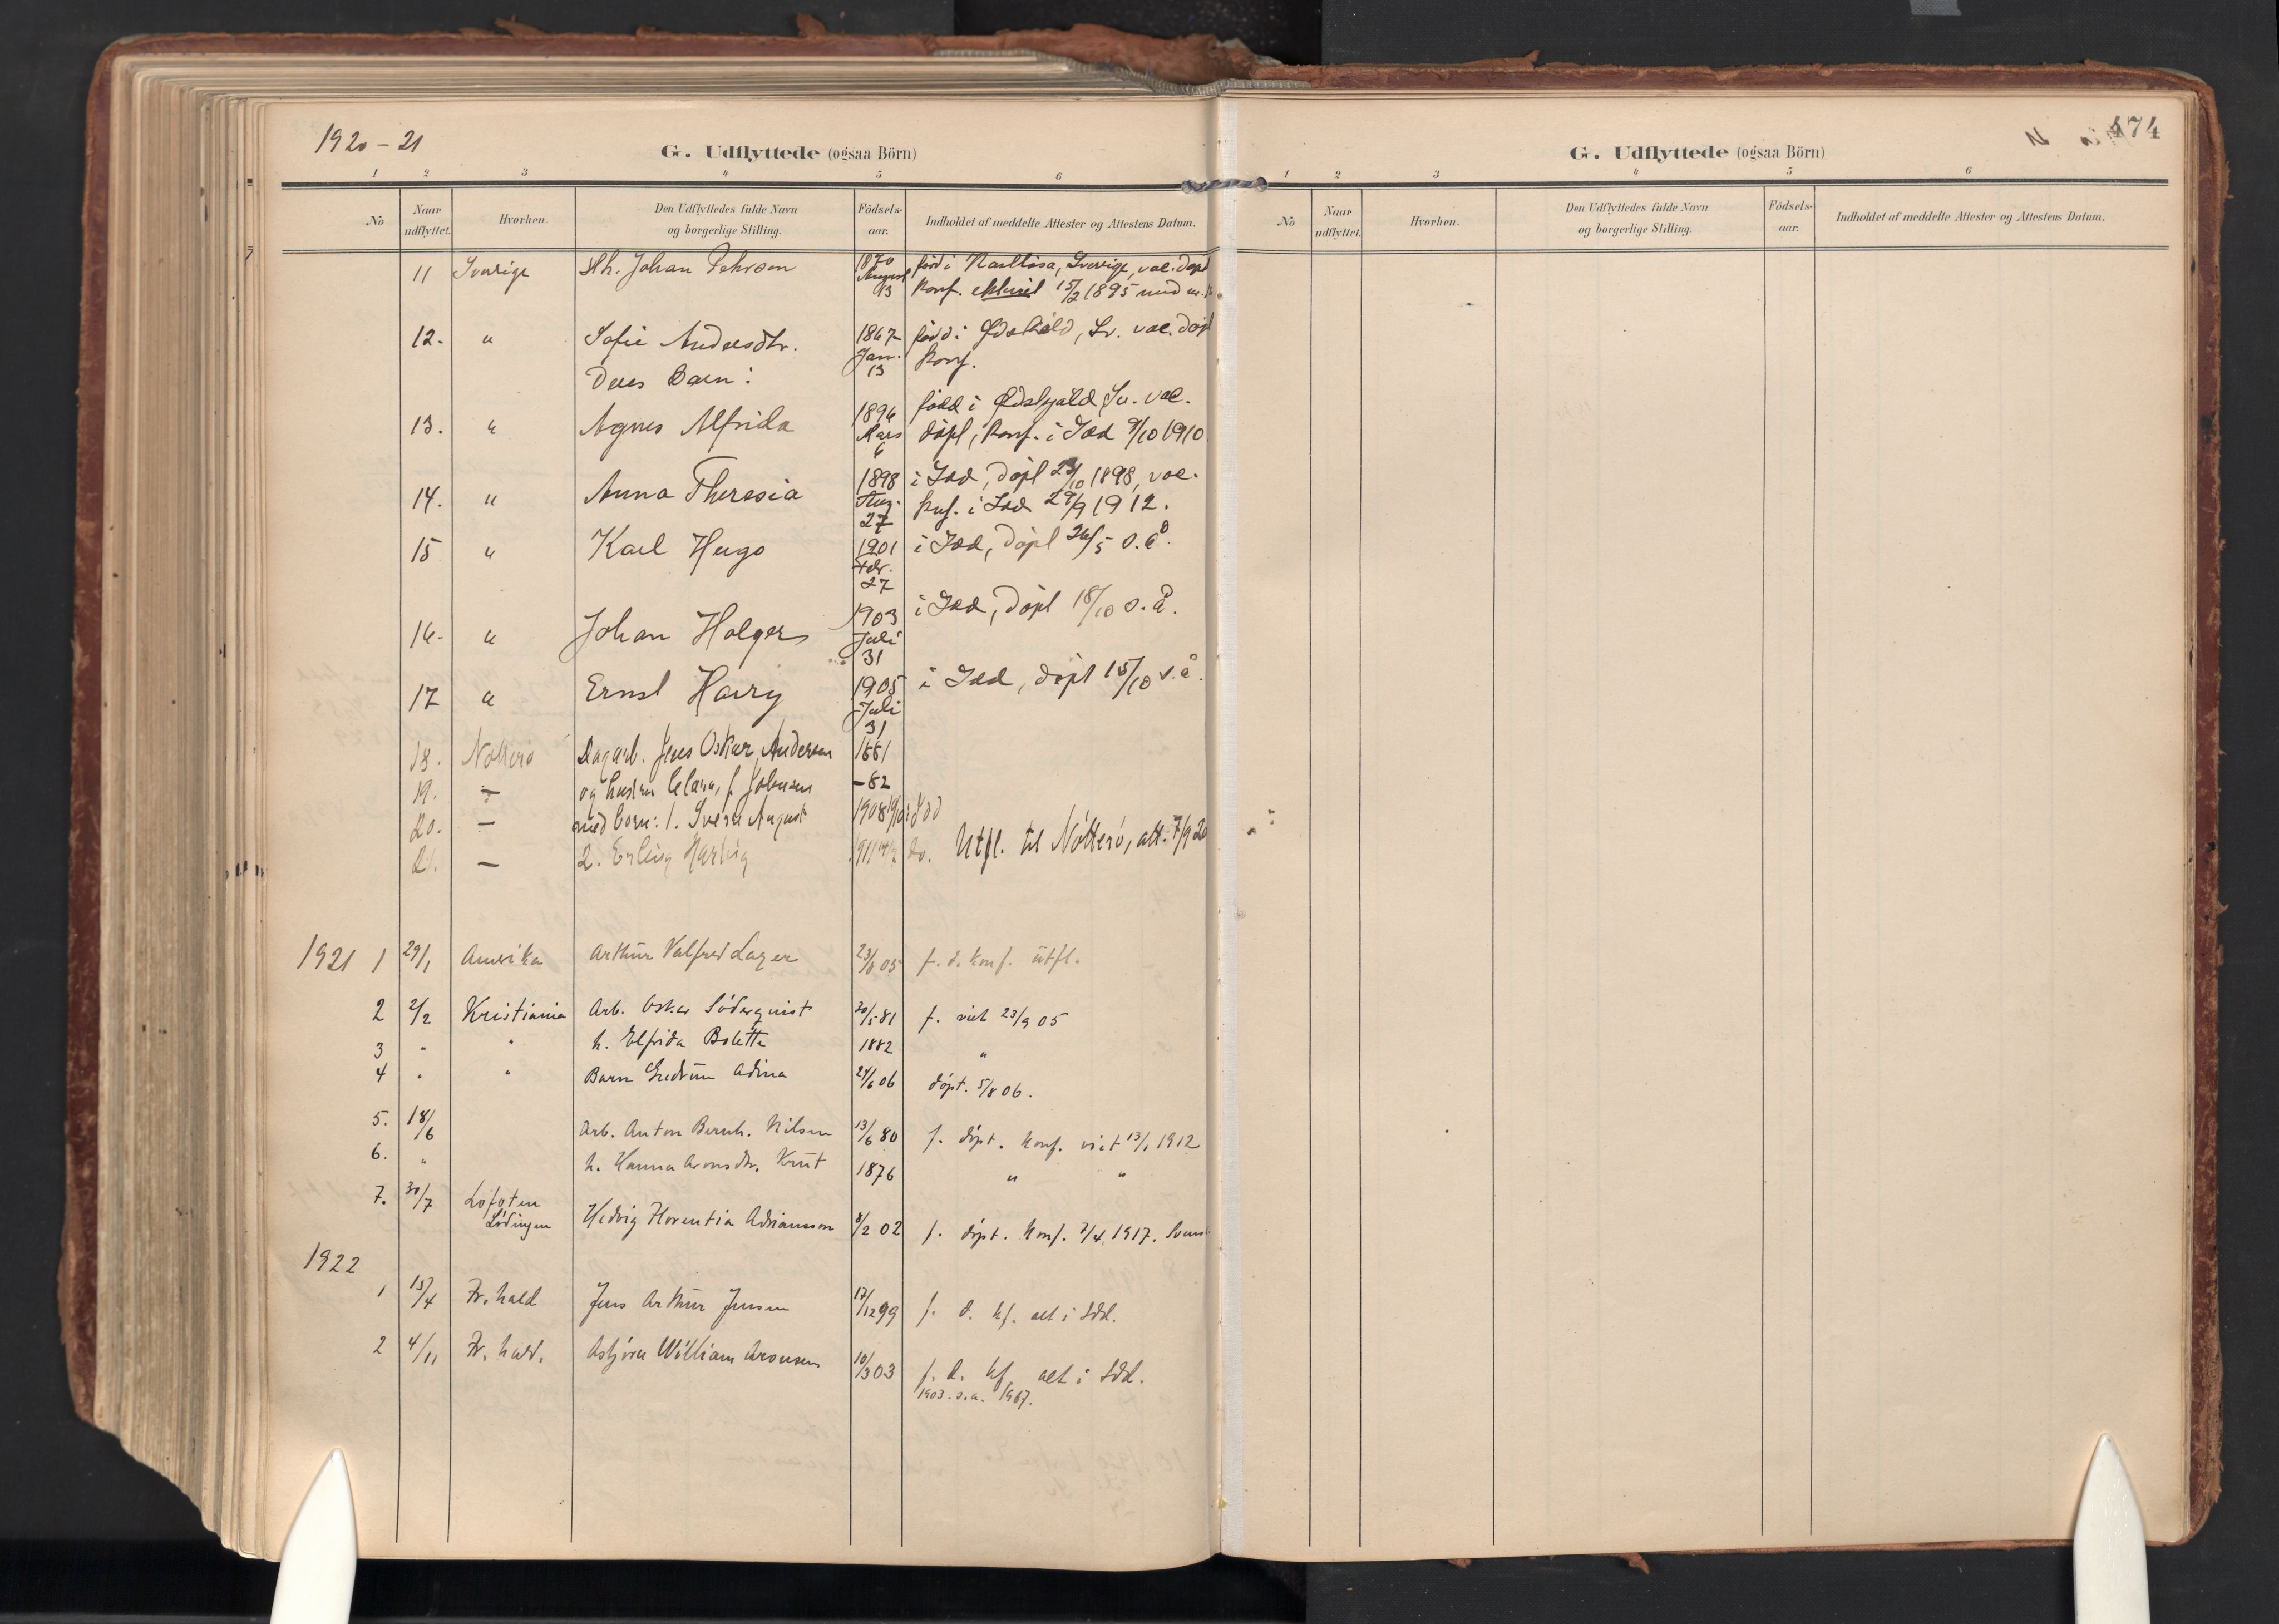 1920 - 21
G. Udflyttede (ogsaa Börn)
1 2 3 4 5 6
No
Naar udflyttet.
Hvorhen.
Den Udflyttedes fulde Navn og borgerlige Stilling.
Födsels-aar.
Indholdet af meddelte Attester og Attestens Datum.
11 Sverige Sth. Johan Pehrson 1870 August 13 född i Sverige, vac. döpt
konf. 15/2 1895
12. " Sofie Andersdtr. 1867 Jan. 13 född i Sv. vac. döpt
konf.
Deres Barn:
13. " Agnes Alfrida 1896 Mars 6 född i Sv. vac.
döpt, konf. i Idd 9/10 1910.
14. " Anna Theresia 1898 Aug. 27 i Idd, döpt 23/10 1898, vac.
konf. i Idd 29/9 1912.
15 " Karl Hugo 1901 Febr. 27 i Idd, döpt 26/5 s. å.
16. " Johan Holger 1903 Juli 31 i Idd, döpt 18/10 s. å.
17 " Ernst Harry 1905 Juli 31 i Idd, döpt 15/10 s. å.
18. Nötterö Dagarb. Jens Oskar Andersen 1881
19. — og hustru Clara, f. Johnsen - 82
20. — med börn: 1. Sverre August 1908 Idd
21. — 2. Erling 1911 do. Utfl. til Nötterö, att. 7/9 20
1921 1 29/1 Amerika Arthur Valfred Lager 23/8 05 f. d. konf. utfl.
2 2/2 Kristiania Arb. Oskar Söderquist 30/5 81 f. viet 23/9 05
3 " " h. Elfrida Bolette 1882 "
4 " " Barn Gudrun Adina 24/6 06 döpt. 5/8 06.
5. 18/6 Arb. Anton Bernh. Nilsen 13/6 80 f. döpt. konf. viet 13/1 1912
6. " h. Hanna Aronsdtr. 1876 " "
7. 30/7 Lofoten Lödingen Hedvig Florentia Adriansson 8/2 02 f. döpt. konf. 7/4 1917.
1922
1 15/4 Fr. hald Jens Arthur Jensen 17/12 99 f. d. kf. alt i Idd.
2 4/11 Fr. hald. Asbjörn William Aronsen 10/3 03 f. d. kf. alt i Idd.
1903. s. a. 1917.
474
G. Udflyttede (ogsaa Börn)
1 2 3 4 5 6
No
Naar udflyttet.
Hvorhen.
Den Udflyttedes fulde Navn og borgerlige Stilling.
Födsels-aar.
Indholdet af meddelte Attester og Attestens Datum.